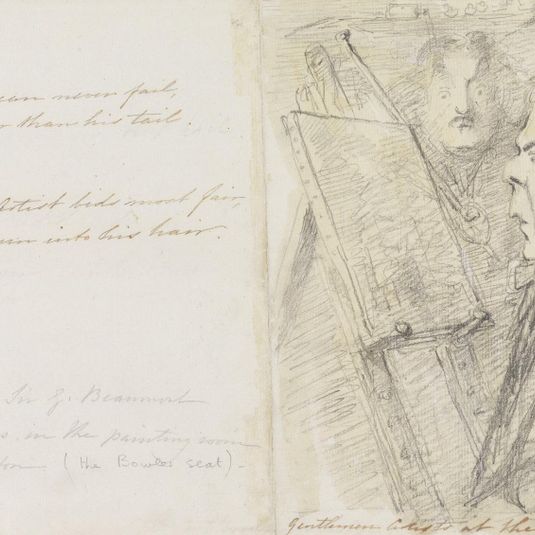 can never fail,
than his tail.
Artist bids most fair,
into his hair.
Sir G. Beaumont
in the painting room
(the Bowles seat) -
Gentlemen Artists at the